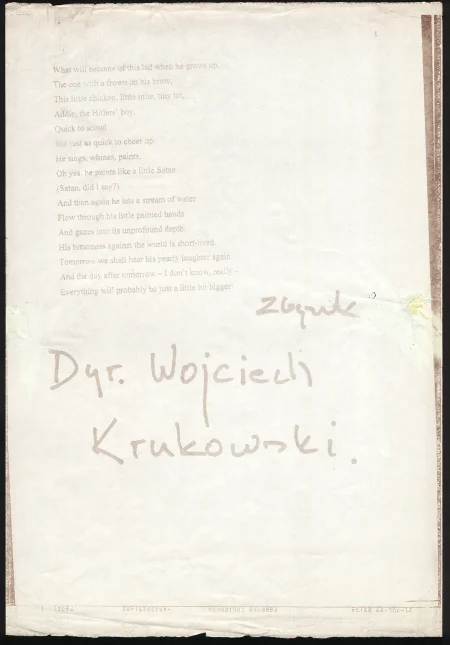 What will become of this lad when he grows up,
The one with a frown on his brow,
This little chicken, little mite, tiny tot,
Addie, the Hitlers' boy,
Quick to scowl
But just as quick to cheer up.
He sings, whines, paints.
Oh yes, he paints like a little Satan
(Satan, did I say?)
And then again he lets a stream of water
Flow through his little painted hands
And gazes into its unprofound depth.
His bitterness against the world is short-lived.
Tomorrow we shall hear his pearly laughter again.
And the day after tomorrow – I don't know, really –
Everything will probably be just a little bit bigger!
Zbynek
Dyr. Wojciech
Krukowski.